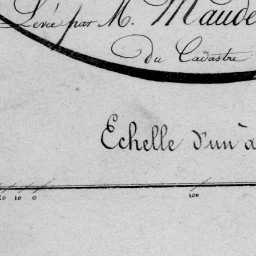 Levée par M. Maude
du Cadastre
Echelle d'un à
20 10 0 100